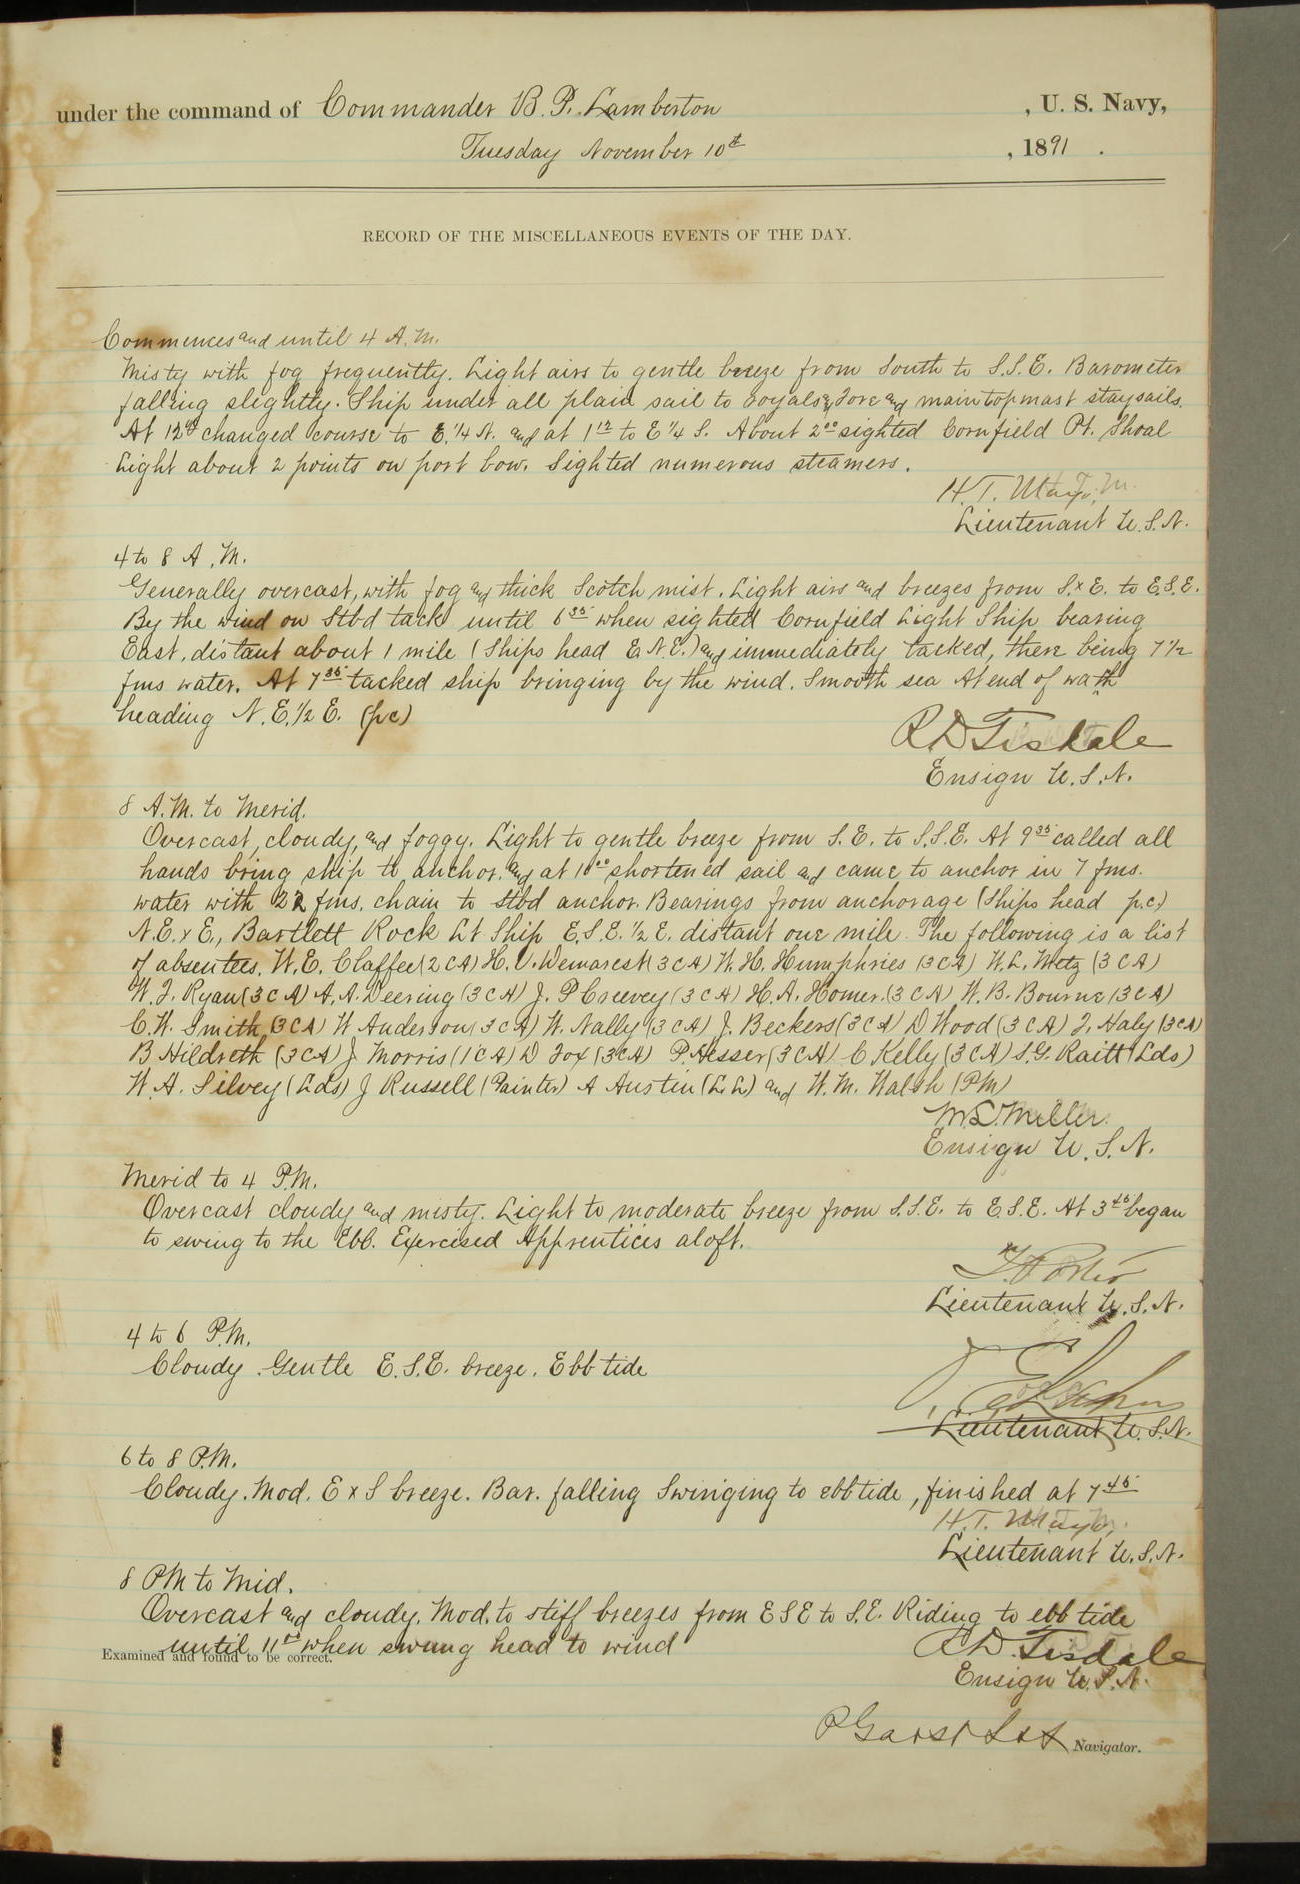 under the command of Commander B. P. Lamberton , U. S. Navy,
Tuesday November 10th , 1891 .
RECORD OF THE MISCELLANEOUS EVENTS OF THE DAY.
Commences and until 4 A. M.
Misty with fog frequently. Light airs to gentle breeze from South to S.S.E. Barometer
falling slightly. Ship under all plain sail to royals, fore and maintopmast staysails.
At 12 changed course to E. 1/4 N. and at 1 12 to E 1/4 S. About 2 00 sighted Cornfield Pt. Shoal
Light about 2 points on port bow. Sighted numerous steamers.
H. T. Mayo
Lieutenant U.S.N.
4 to 8 A. M.
Generally overcast, with fog and thick Scotch mist. Light airs and breezes from S. x E. to E.S.E.
By the wind on Stbd tack until 6 35 when sighted Cornfield Light Ship bearing
East, distant about 1 mile (Ships head E. N. E.) and immediately tacked, there being 7 1/2
fms water. At 7 35 tacked ship bringing by the wind. Smooth sea At end of wath
heading N. E. 1/2 E. (p c)
R D Tisdale
Ensign U. S. N.
8 A. M. to Merid.
Overcast, cloudy, and foggy. Light to gentle breeze from S. E. to S.S.E. At 9 35 called all
hands bring ship to anchor, and at 10 00 shortened sail and came to anchor in 7 fms.
water with 22 fms. chain to Stbd anchor. Bearings from anchorage (Ships head p.c.)
N.E. x E., Bartlett Rock Lt Ship E.S.E. 1/2 E. distant one mile. The following is a list
of absentees. W. E. Claffee (2 C A) H. V. Demarest (3 C A) W. H. Humphries (3 C A) W. L. Metz (3 C A)
W. J. Ryan (3 C A) A. A. Deering (3 C A) J. P Creevey (3 C A) H. A. Homer. (3 C A) W. B. Bourne (3 C A)
C. W. Smith, (3 C A) W Anderson (3 C A) W. Nally (3 C A) J. Beckers (3 C A) D Wood (3 C A) J. Haly (3 C A)
B Hildreth (3 C A) J Morris (1 C A) D Fox (3 C A) P. Hesser (3 C A) C Kelly (3 C A) S. G. Raitt (Lds)
W. A. Silvey (Lds) J Russell (Painter) A Austin (L. L.) and W. M. Walsh (PM)
M. L. Miller.
Ensign U. S. N.
Merid to 4 P.M.
Overcast cloudy and misty. Light to moderate breeze from S.S.E. to E.S.E. At 3 45 began
to swing to the Ebb. Exercised Apprentices aloft.
Lieutenant U. S. N.
4 to 6 P.M.
Cloudy. Gentle E.S.E. breeze. Ebb tide
Lieutenant U. S. N.
6 to 8 P.M.
Cloudy. Mod. E x S breeze. Bar. falling Swinging to ebb tide, finished at 7 45
H. T. Mayo
Lieutenant U. S. N.
8 PM to Mid.
Overcast and cloudy. Mod. to stiff breezes from E S E to S. E. Riding to ebb tide
until 11 00 when swung head to wind
R. D. Tisdale
Examined and found to be correct.
Ensign U. S. N.
P Garst Lt Navigator.